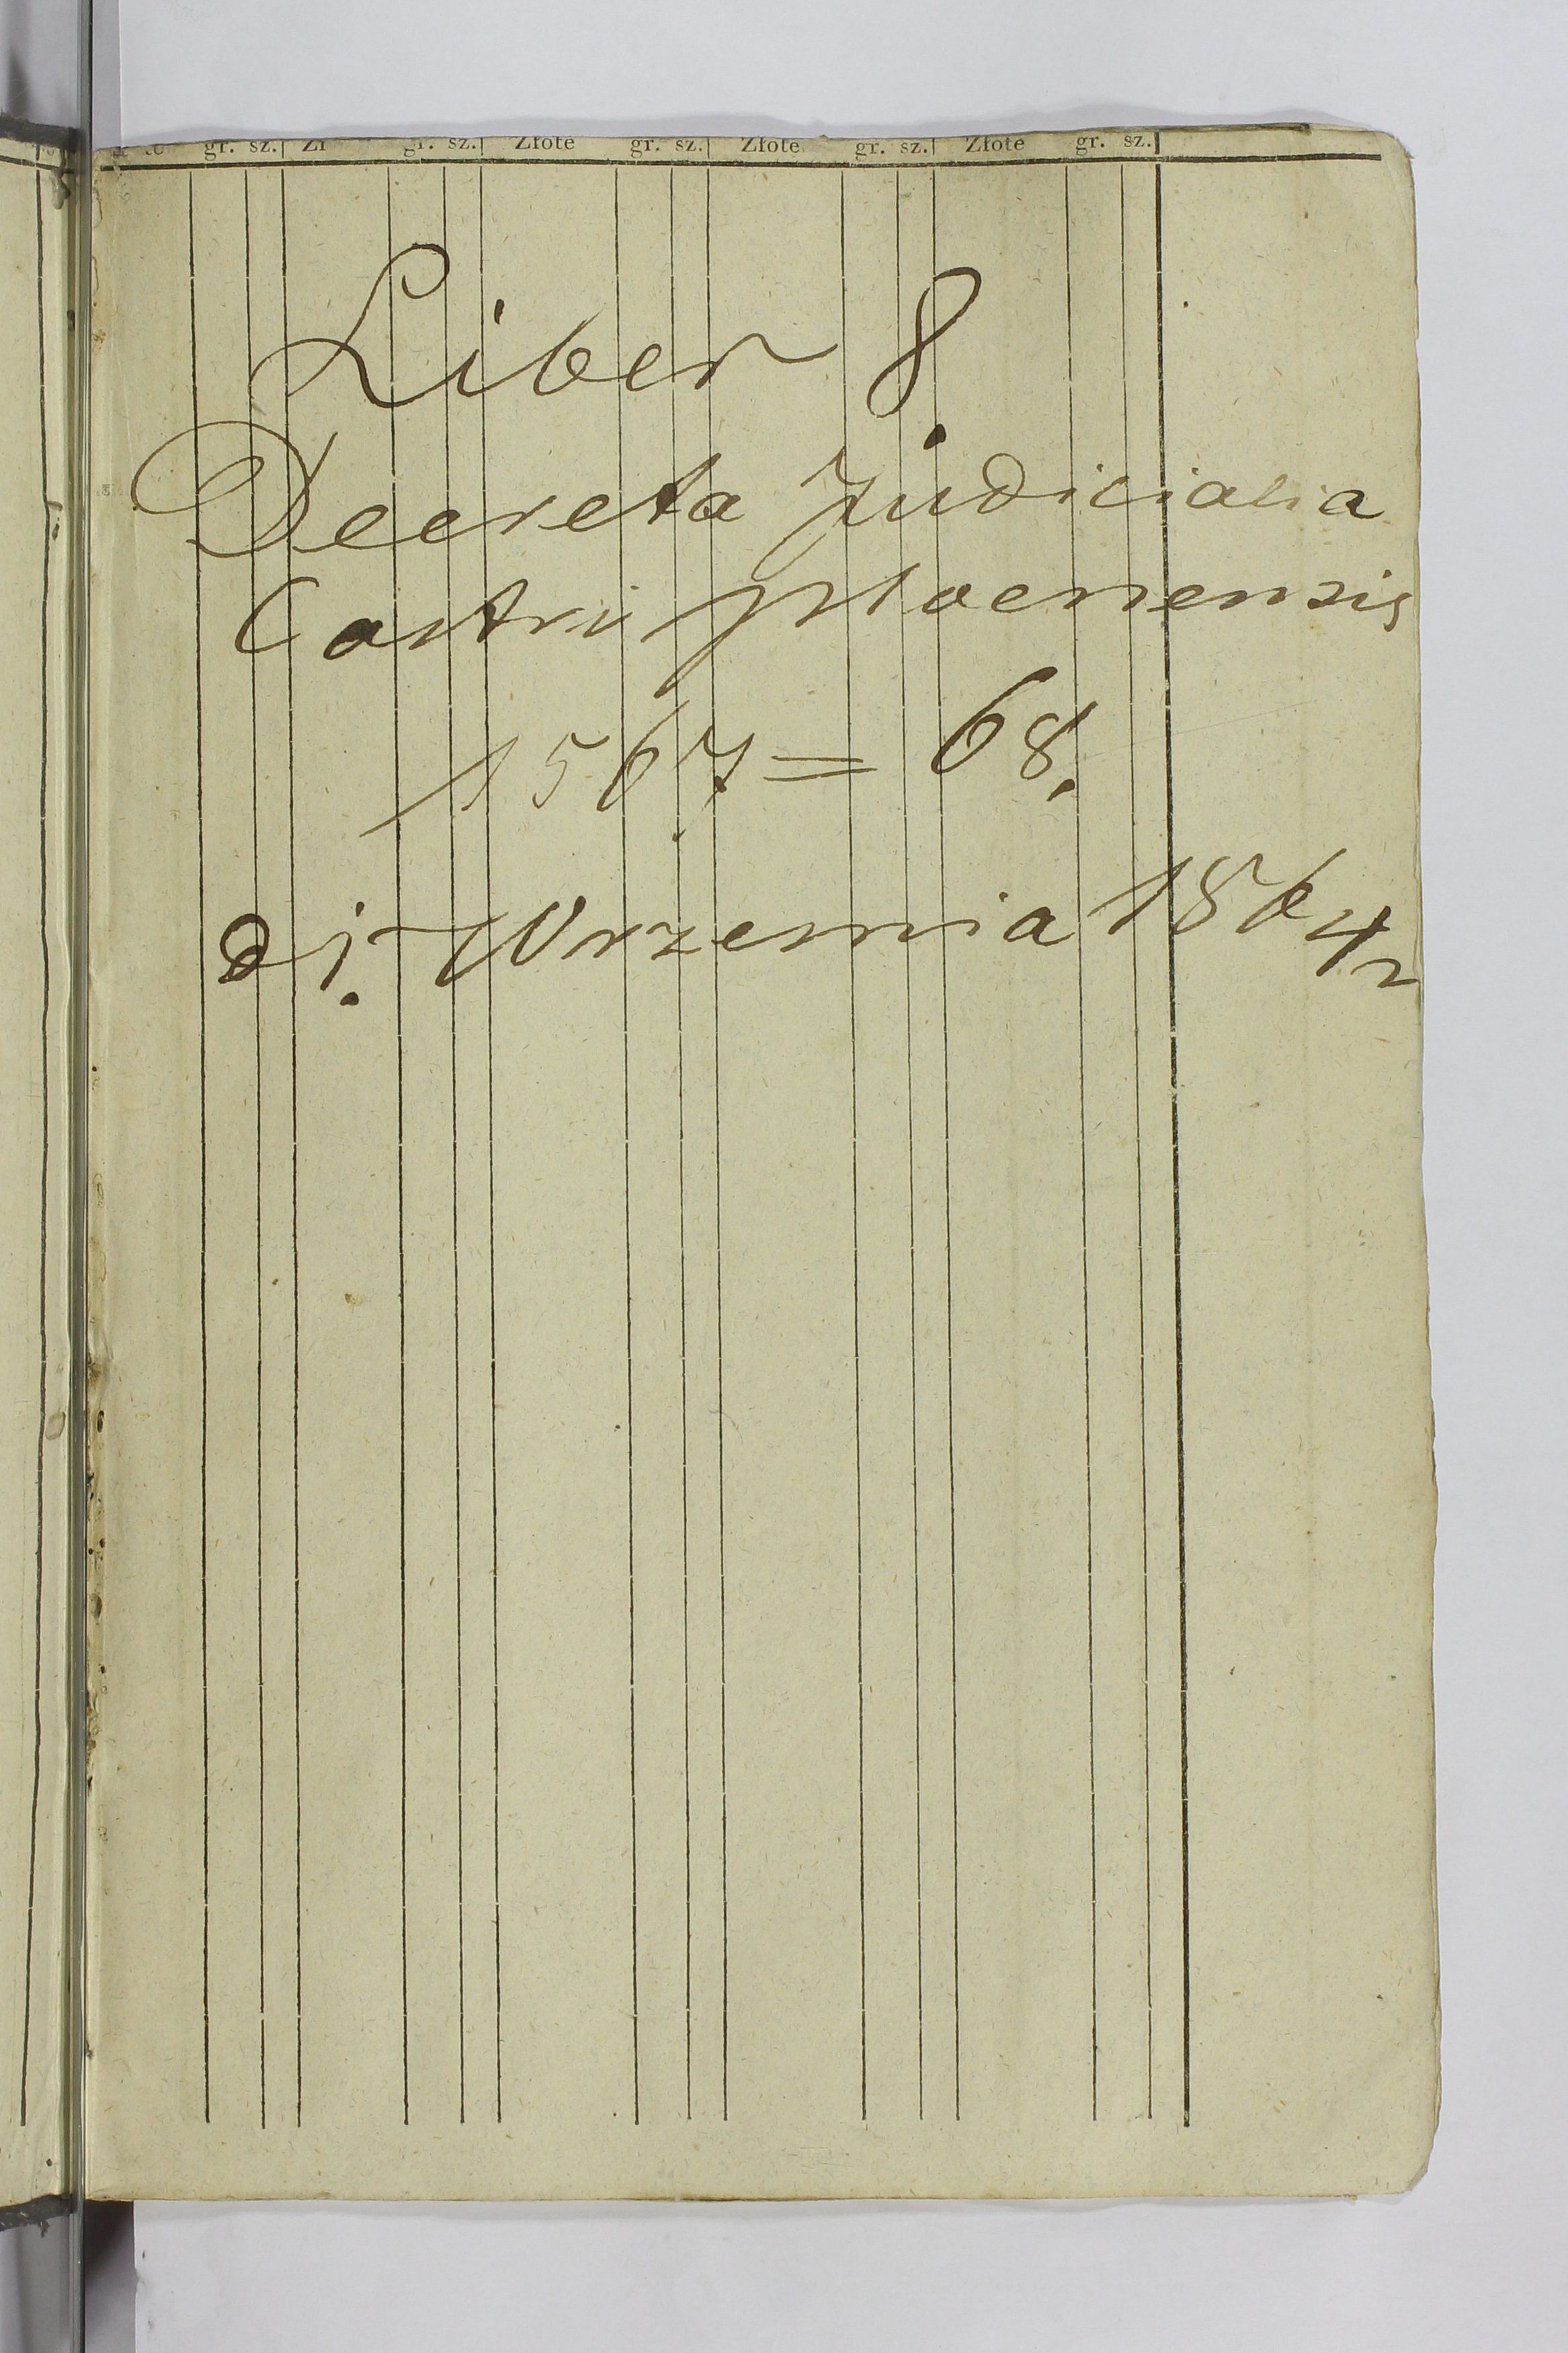 gr. sz. Zł gr. sz. Złote gr. sz. Złote gr. sz. Złote gr. sz.
Liber 8
Decreta Judicialia
Castri plocnensis
1567 = 68.
d j. Wrzesnia 1864 r